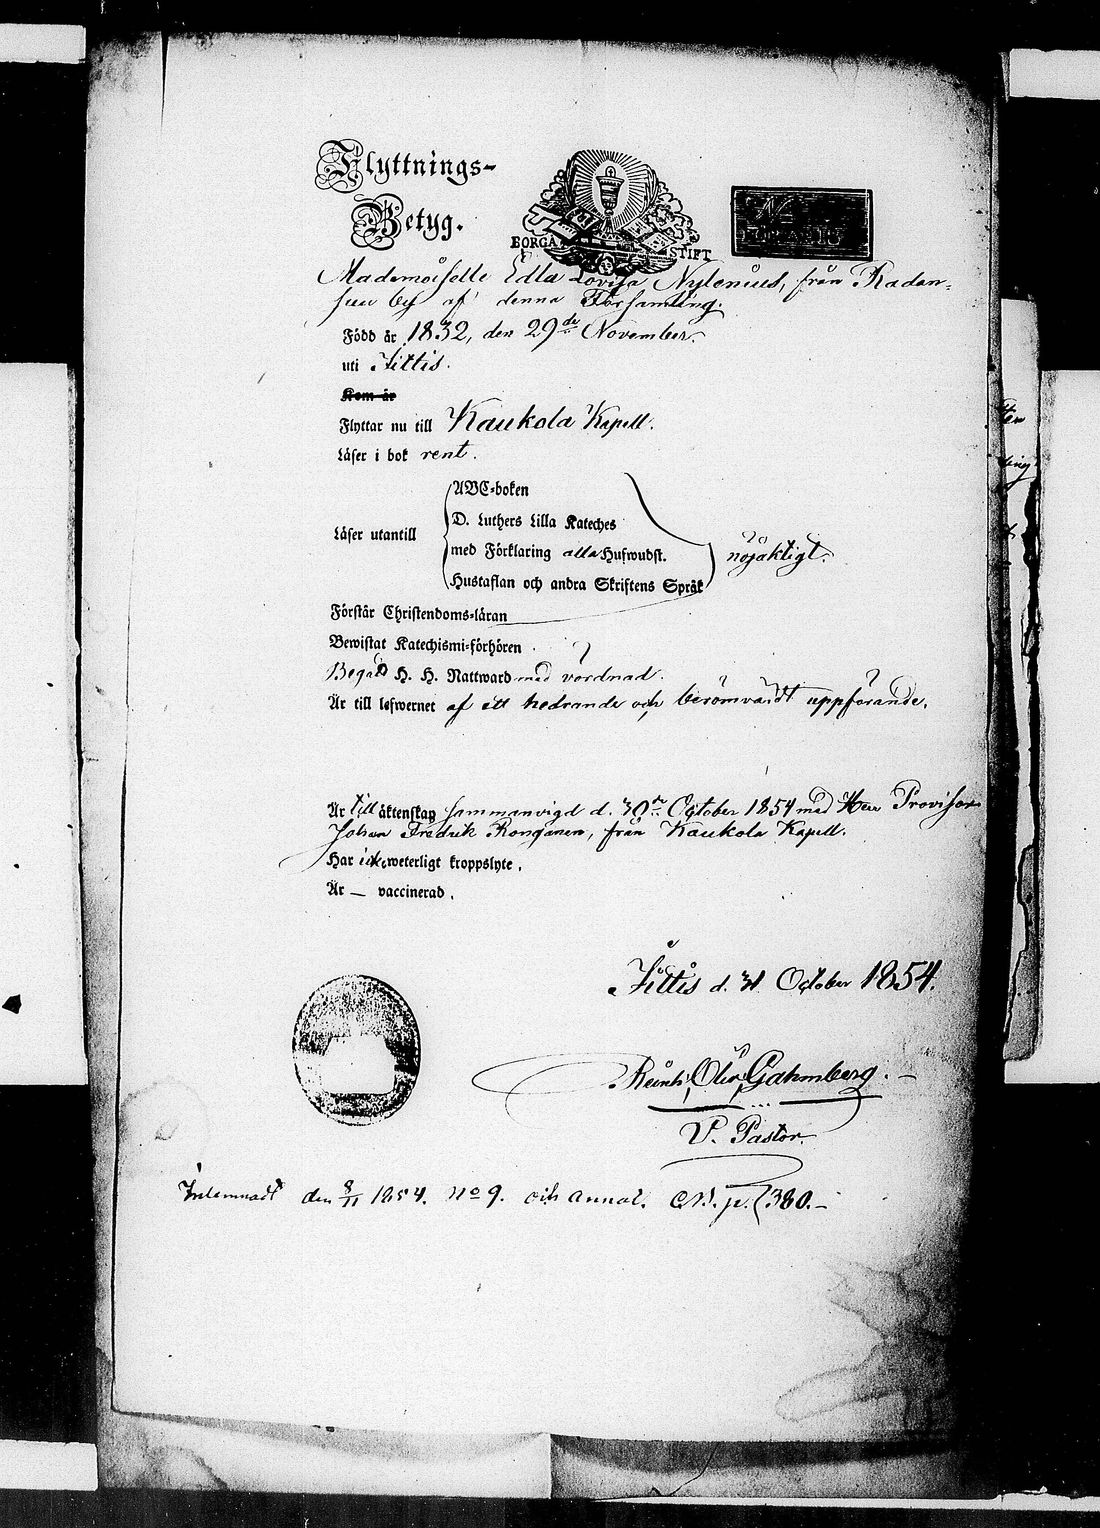 Flyttnings-
Betyg.
BORGÅ STIFT
Mademoiselle Edla Lovisa Nylenius, från Radan-
suu by af denna Församling.
Född år 1832, den 29de November.
uti Jittis.
Kom år
Flyttar nu till Kaukola Kapell.
Läser i bok rent.
Läser utantill
ABC-boken
D. Luthers Lilla Kateches
med Förklaring alla Hufwudst.
Hustaflan och andra Skriftens Språk
nöjaktigt.
Förstår Christendoms-läran
Bewistat Katechismi-förhören
Begått H. H. Nattward med vördnad.
Är till lefwernet af ett hedrande och berömvärdt uppförande.
Är till äktenskap sammanvigd d. 30de October 1854 med Herr Provisor
Johan Fredrik Ronganen, från Kaukola Kapell.
Har icke weterligt kroppslyte.
Är — vaccinerad.
Jittis d. 31 October 1854.
Gahmberg.
V. Pastor.
Inlemnadt den 8/11 1854. No 9. och annot. C.B. p. 380.-